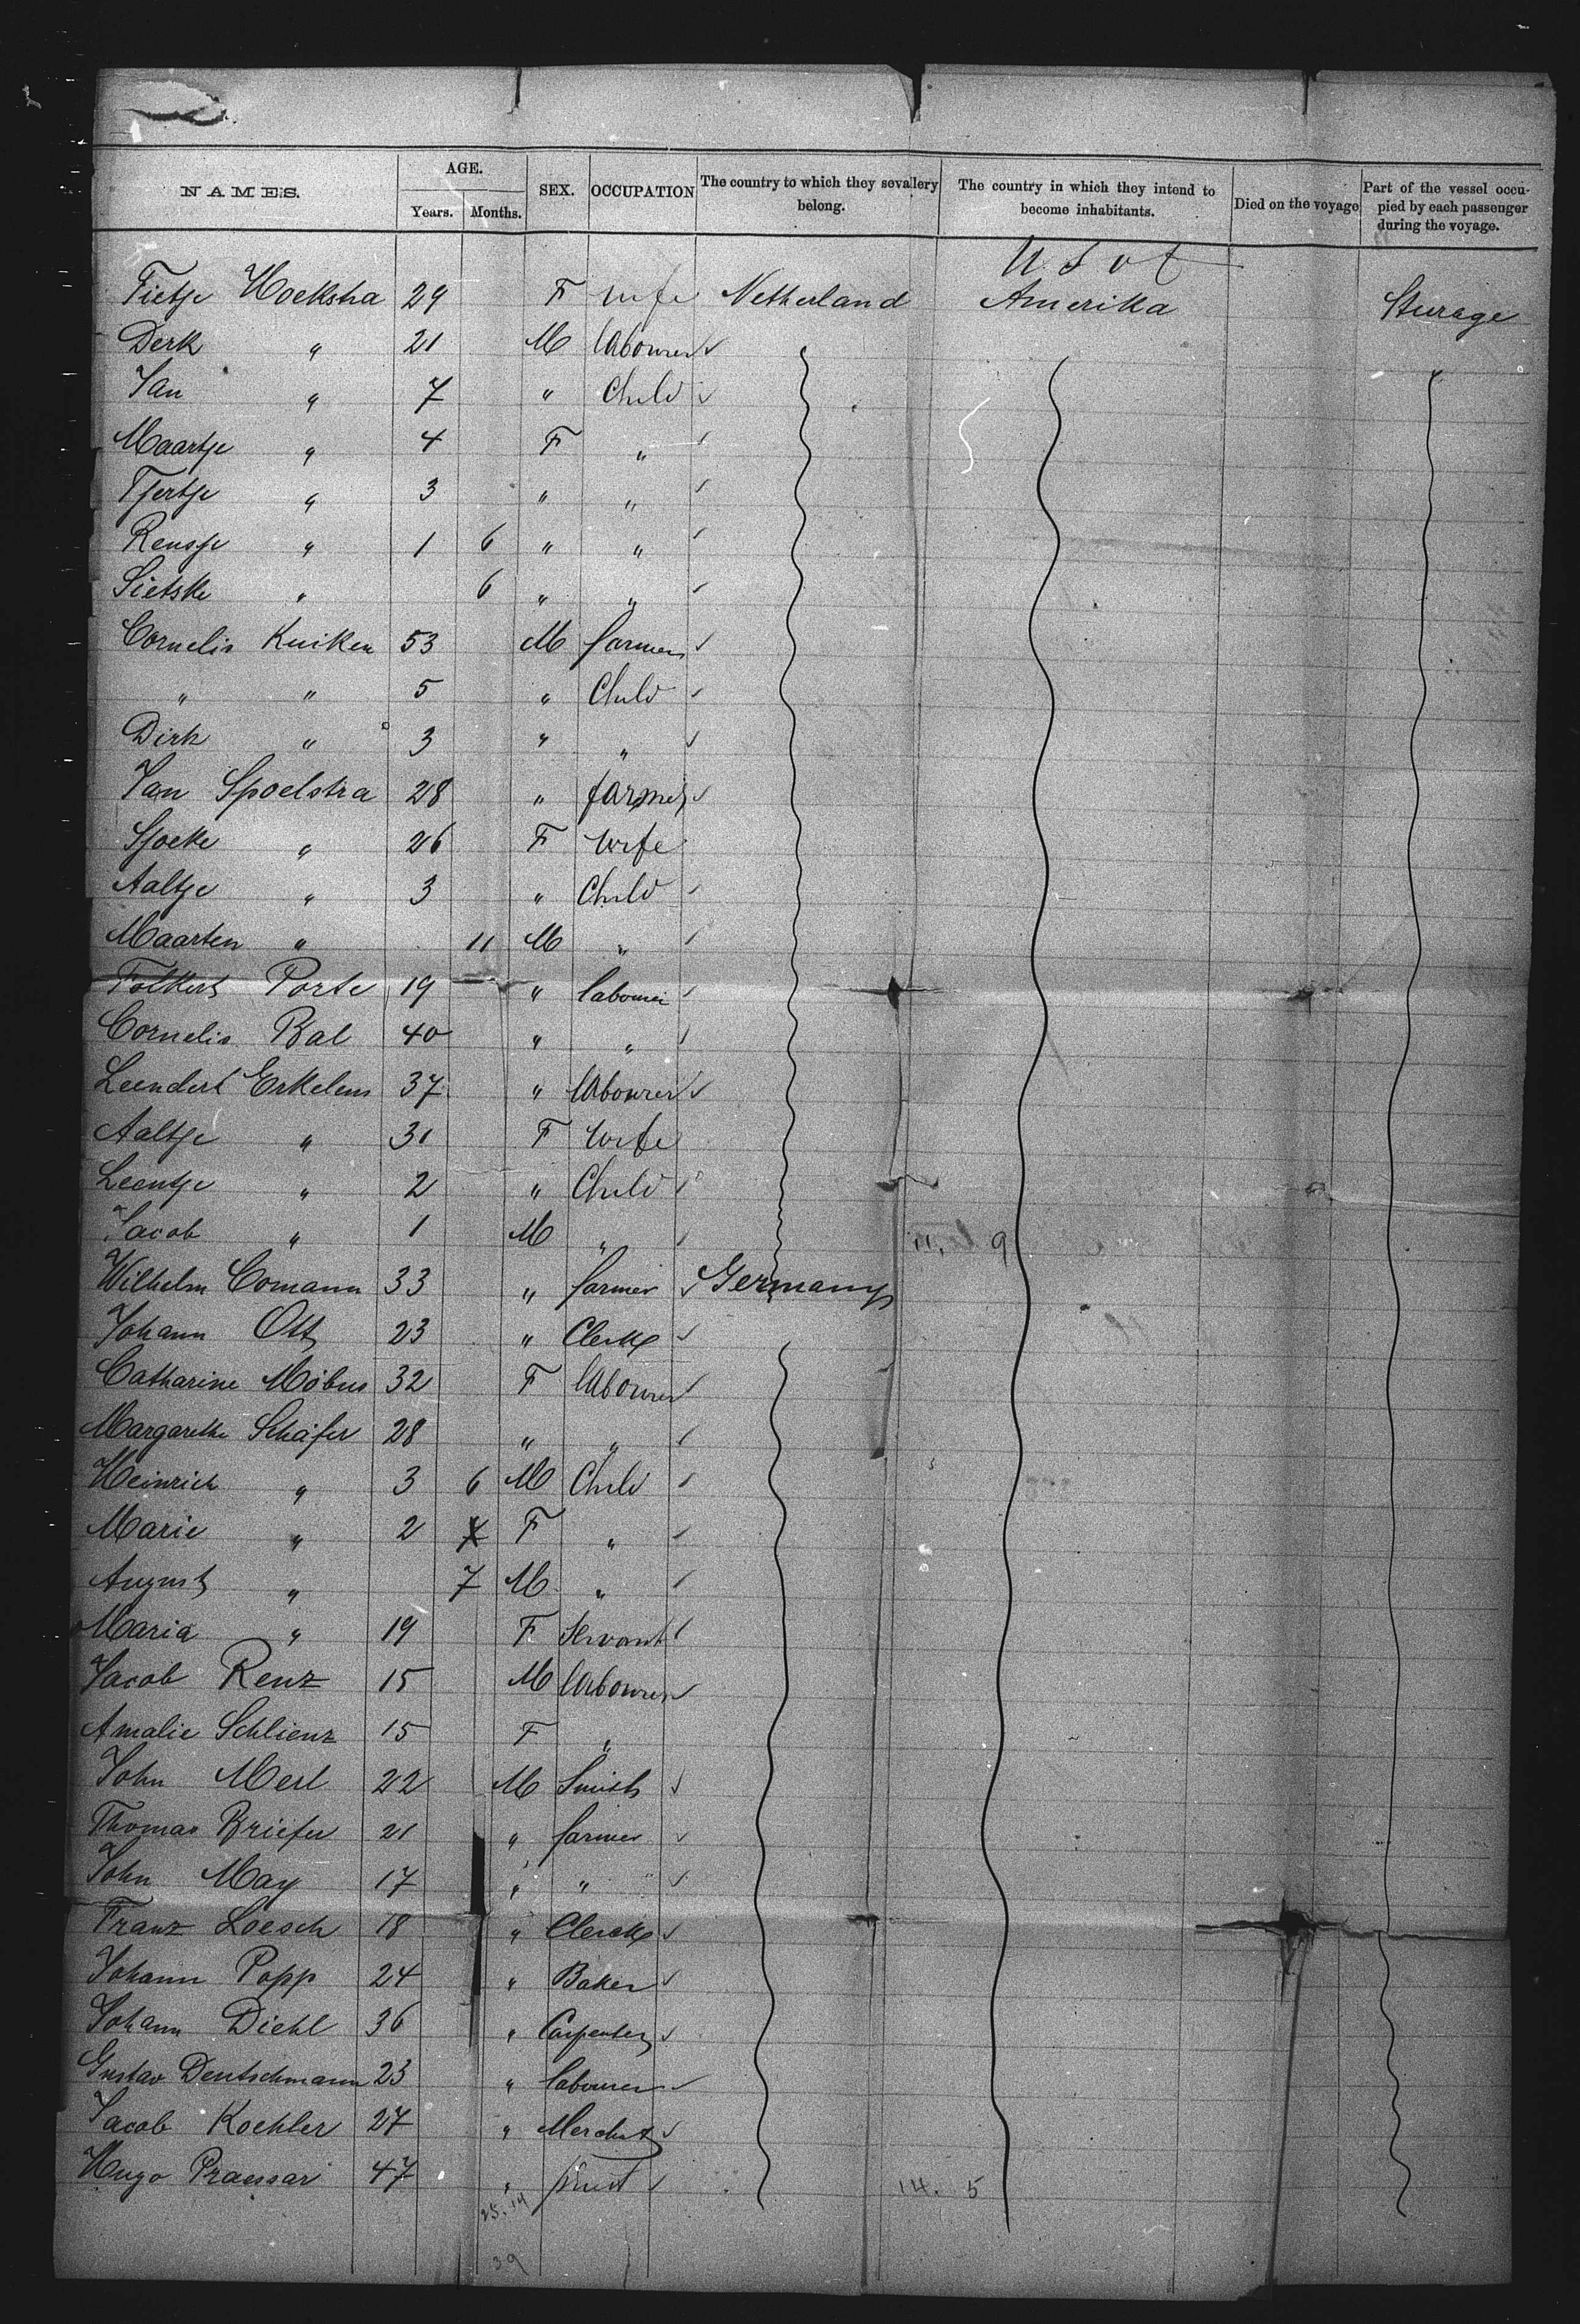 NAMES. AGE. SEX. OCCUPATION The country to which they sevallery belong. The country in which they intend to become inhabitants. Died on the voyage Part of the vessel occupied by each passenger during the voyage.
Years. Months.
U S of
Tietje Hoekstra 29 F wife Netherland Amerika Sturage
Derk " 21 M labourer
Jan " 7 " Child
Maartje " 4 F "
Tjertje " 3 " "
Rensje " 1 6 " "
Sietske " 6 " "
Cornelis Kuiken 53 M farmer
" " 5 " Child
Dirk " 3 " "
Jan Spoelstra 28 " farmer
Sjoeke " 26 F wife
Aaltje " 3 " Child
Maarten " 11 M "
Folkert Porte 19 " labourer
Cornelis Bal 40 " "
Leendert Erkelens 37 " labourer
Aaltje " 31 F wife
Leentje " 2 " Child
Jacob " 1 M " 11. 9
Wilhelm Comann 33 " farmer Germany
Johann Ott 23 " Clerk
Catharine Möbus 32 F labourer
Margarethe Schäfer 28 " "
Heinrich " 3 6 M Child
Marie " 2 F "
August " 7 M "
Maria " 19 F Servant
Jacob Renz 15 M labourer
Amalie Schlienz 15 F "
John Merl 22 M Smith
Thomas Briefer 21 " farmer
John May 17 " "
Franz Loesch 18 " Clerck
Johann Popp 24 " Baker
Johann Diehl 36 " Carpenter
Gustav Deutschmann 23 " labourer
Jacob Koehler 27 " Merchnt
Hugo Praessar 47 " priest 14. 5
25. 14
39